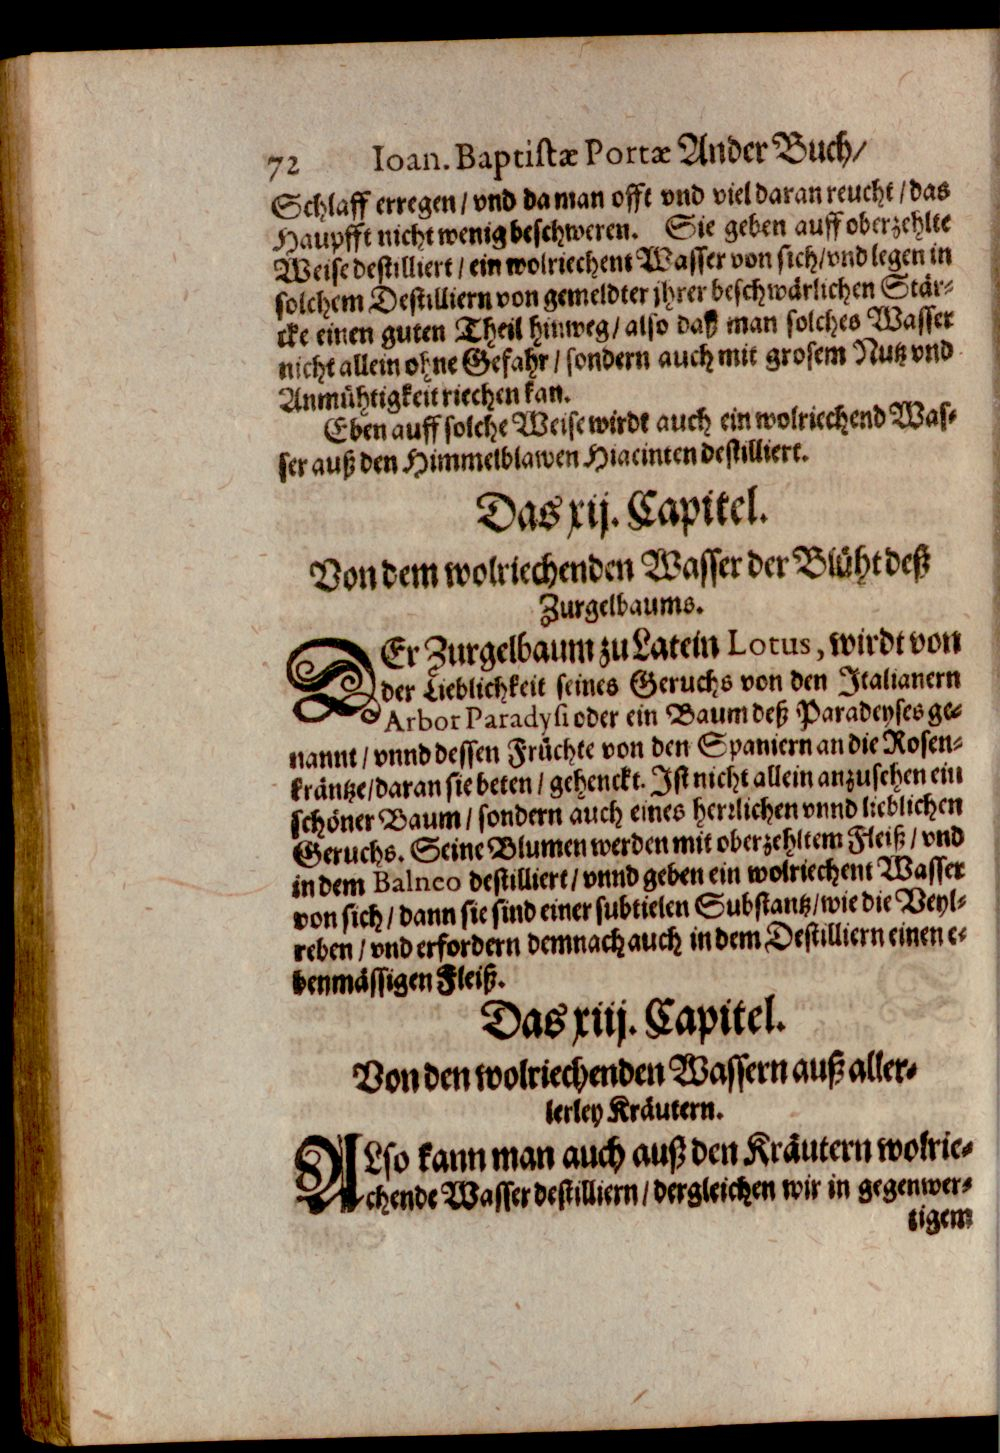 72 Ioan. Baptistæ Portæ Ander Buch/
Schlaff erregen / vnd da man offt vnd viel daran reucht / das
Haupfft nicht wenig beschweren. Sie geben auff oberzehlte
Weise destilliert / ein wolriechent Wasser von sich / vnd legen in
solchem Destilliern von gemeldter jhrer beschwärlichen Stär⸗
cke einen guten Theil hinweg / also daß man solches Wasser
nicht allein ohne Gefahr / sondern auch mit grosem Nutz vnd
Anmühtigkeit riechen kan.
Eben auff solche Weise wirdt auch ein wolriechend Was⸗
ser auß den Himmelblawen Hiacinten destilliert.
Das xij. Capitel.
Von dem wolriechenden Wasser der Blüht deß
Zurgelbaums.
DEr Zurgelbaum zu Latein Lotus, wirdt von
der Lieblichkeit seines Geruchs von den Italianern
Arbor Paradysi oder ein Baum deß Paradeyses ge⸗
nannt / vnnd dessen Früchte von den Spaniern an die Rosen⸗
kräntze / daran sie beten / gehenckt. Ist nicht allein anzusehen ein
schöner Baum / sondern auch eines herrlichen vnnd lieblichen
Geruchs. Seine Blumen werden mit oberzehltem Fleiß / vnd
in dem Balneo destilliert / vnnd geben ein wolriechent Wasser
von sich / dann sie sind einer subtielen Substantz / wie die Veyl⸗
reben / vnd erfordern demnach auch in dem Destilliern einen e⸗
benmässigen Fleiß.
Das xiij. Capitel.
Von den wolriechenden Wassern auß aller⸗
lerley Kräutern.
ALso kann man auch auß den Kräutern wolrie⸗
chende Wasser destilliern / dergleichen wir in gegenwer⸗
tigem